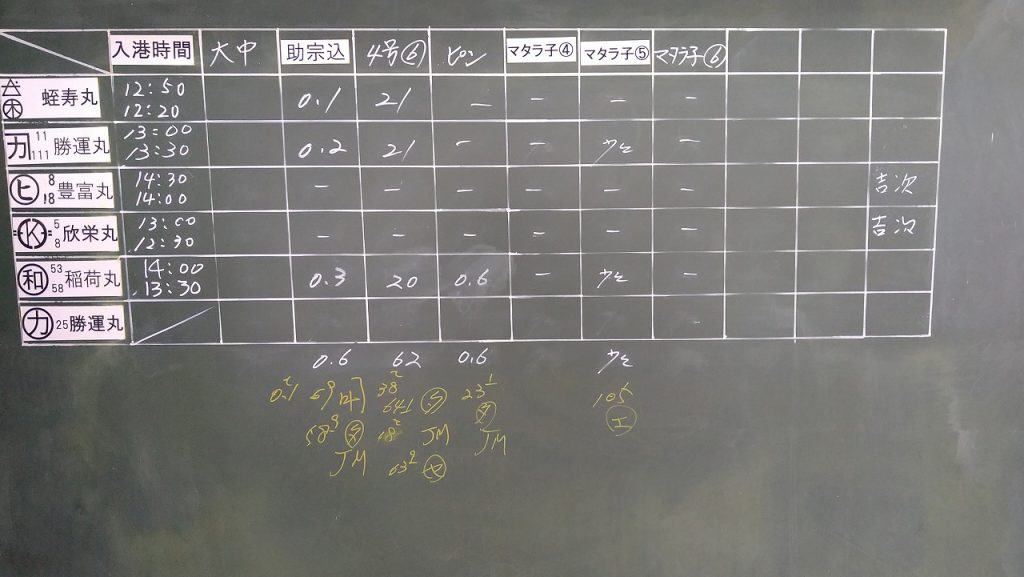 入港時間 大中 助宗込 4号⑥ ピン マタラ子④ マタラ子⑤ マタラ子⑥
蛭寿丸 12:50 0.1 21 — — — —
12:20
カ 11 勝運丸 13:00 0.2 21 — — 少々 —
111 13:30
ヒ 8 豊富丸 14:30 — — — — — — 吉次
18 14:00
K 5 欣栄丸 13:00 — — — — — — 吉次
8 12:30
和 53 稲荷丸 14:00 0.3 20 0.6 — 少々 —
58 13:30
カ 25 勝運丸
0.6 62 0.6 少々
38² 23¹ 105
641
58⁹ JM エ
JM JM
63²